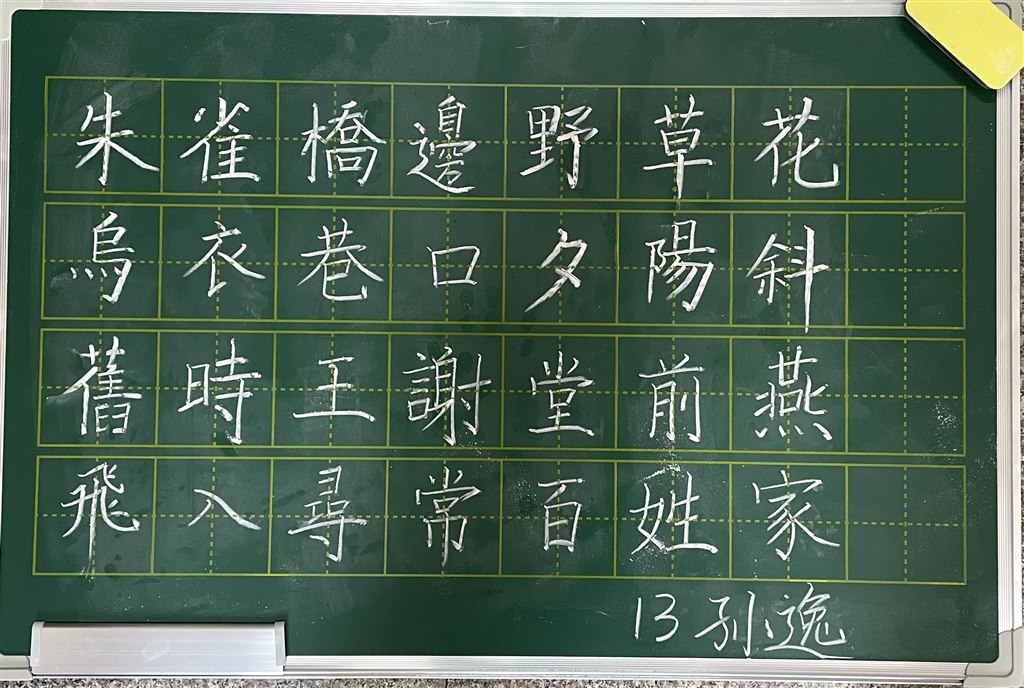 朱雀橋邊野草花
烏衣巷口夕陽斜
舊時王謝堂前燕
飛入尋常百姓家
13 孙逸